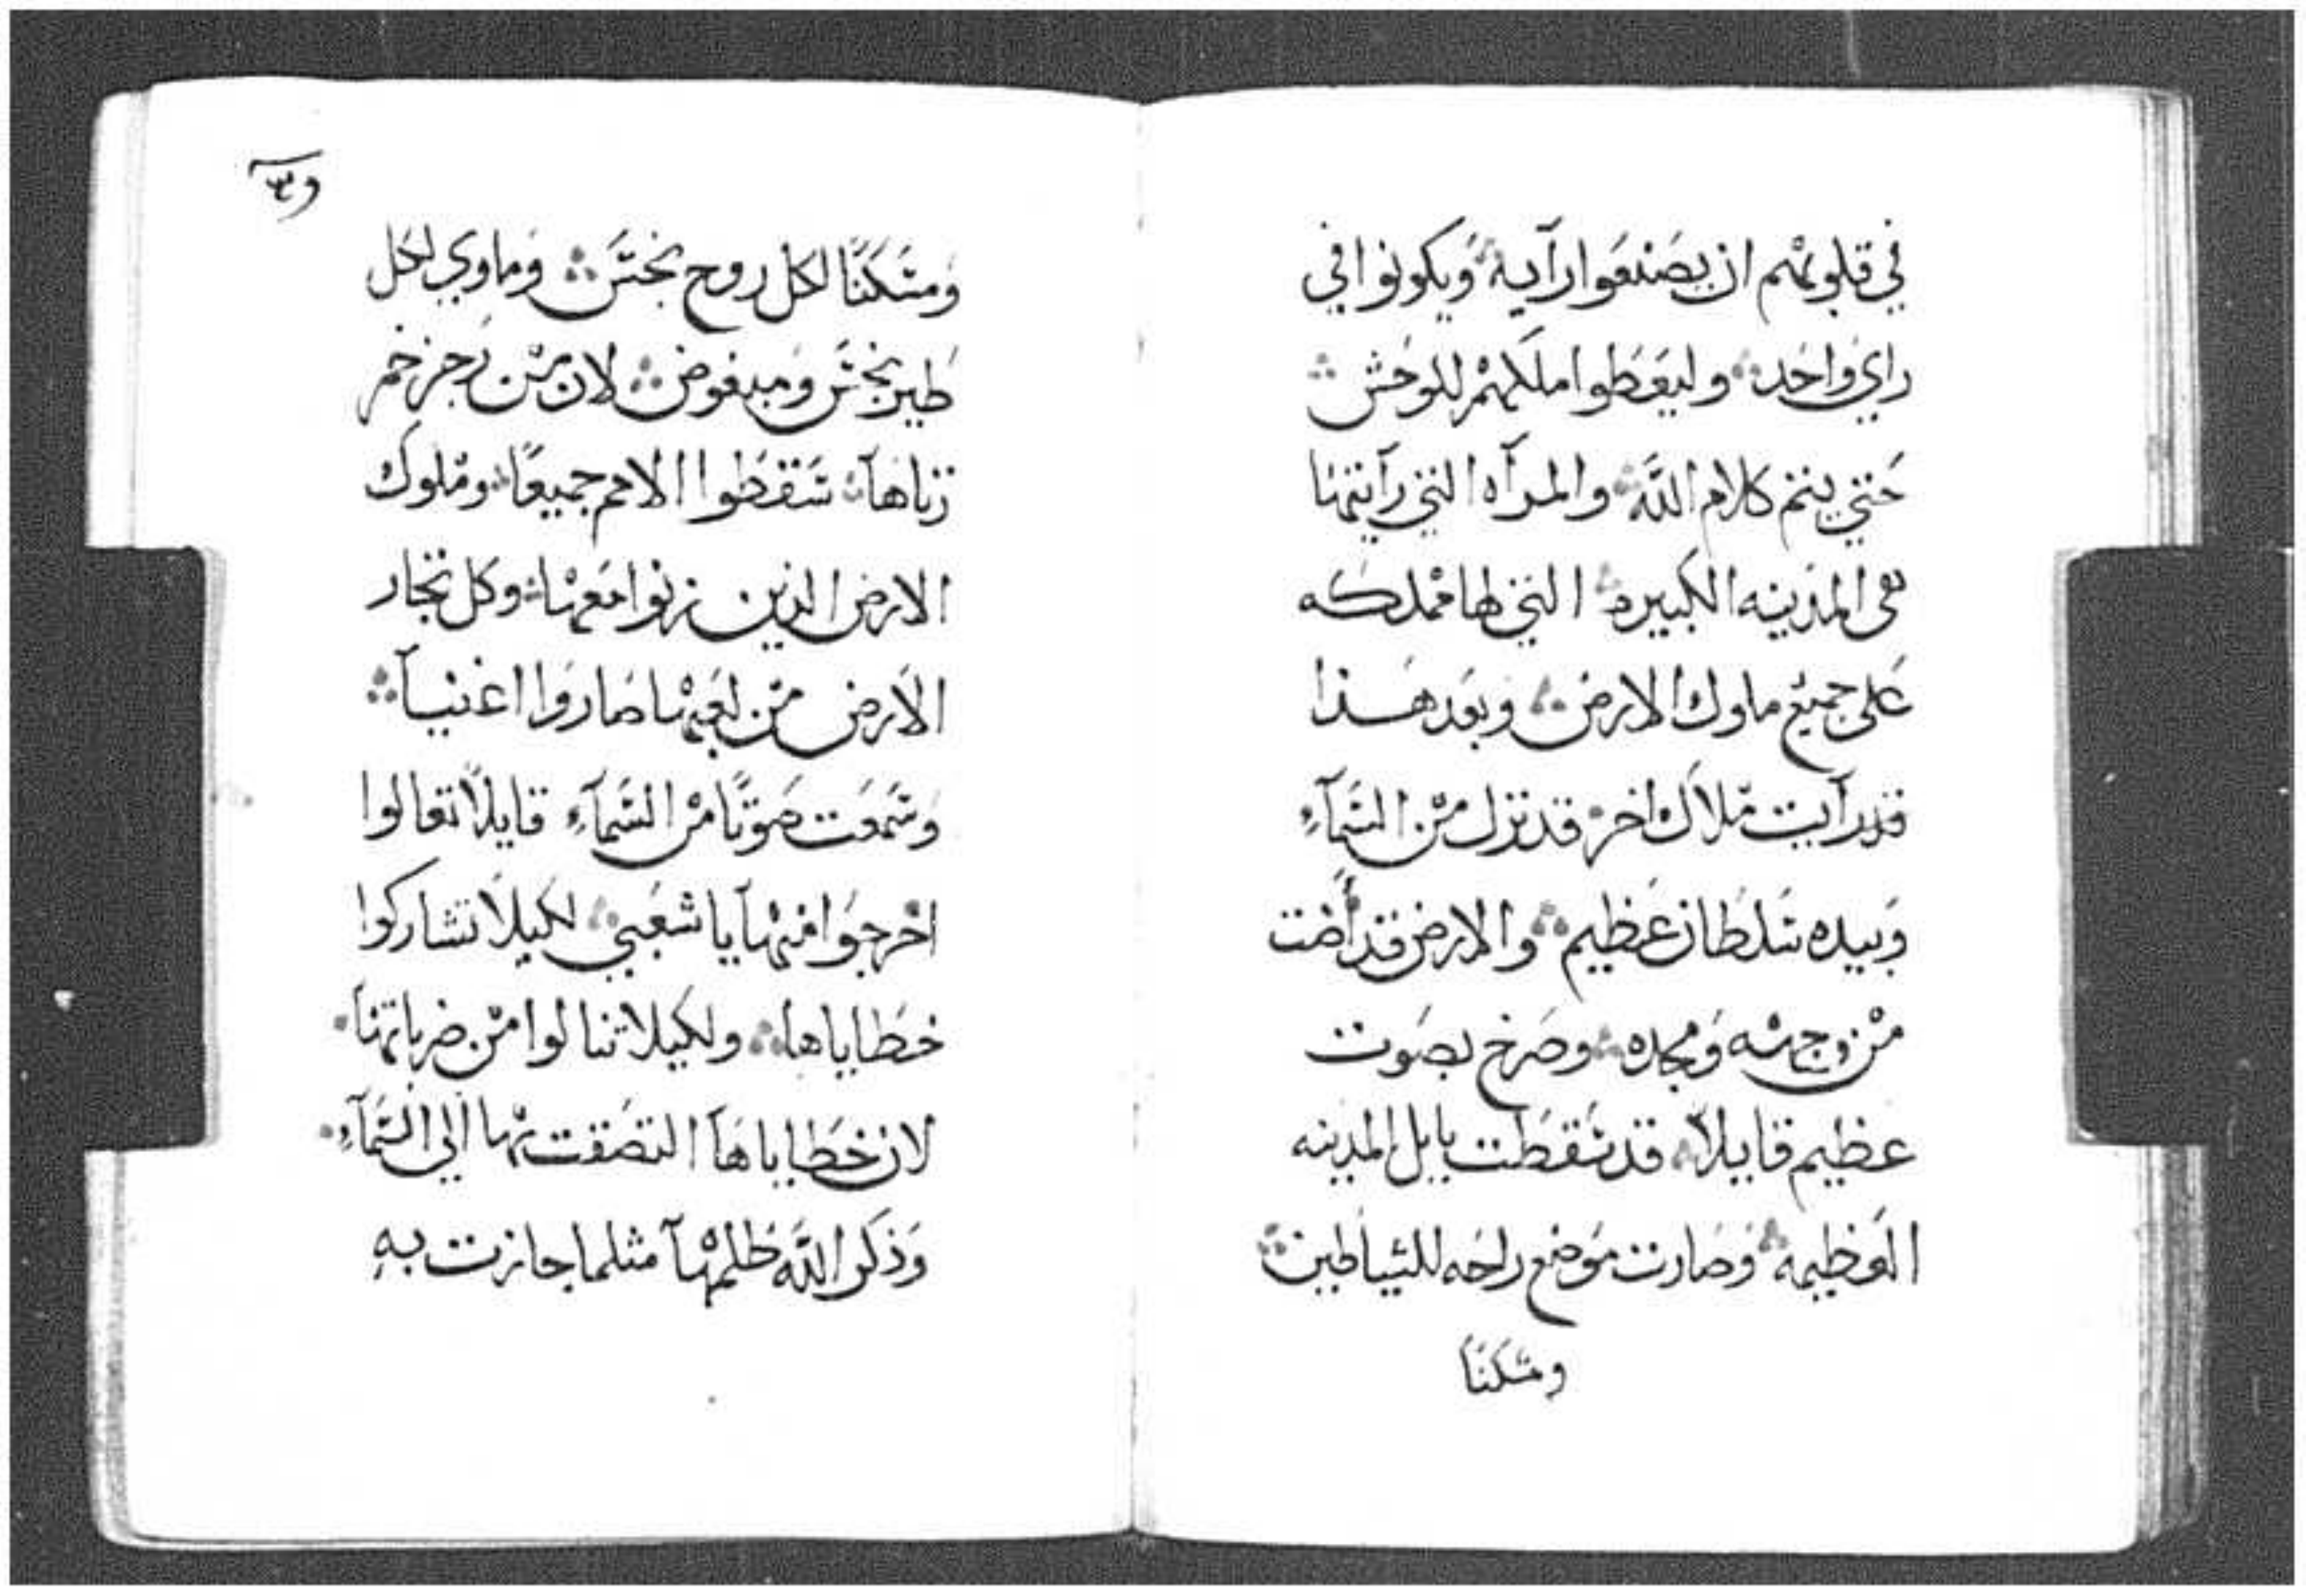 في قلوبهم ان يصنعوا رآيه ويكونوا في
راي واحد وليعطوا ملكهم للوحش
حتي يتم كلام الله والمرآه التي رآيتها
هى المدينه الكبيره التي لها مملكه
على جميع ملوك الارض وبعد هذا
قد رآيت ملاك اخر قد نزل من السمآء
وبيده سلطان عظيم والارض قد أضت
من وجهه ومجده وصرخ بصوت
عظيم قايلاً قد سقطت بابل المدينه
العظيمه وصارت موضع راحه للشياطين
ومسكنا
ومسكنًا لكل روح نجس وماوي لكل
طير نجس ومبغوض لان من رجز خمر
زناهآ سقطوا الامم جميعًا وملوك
الارض الذين زنوا معها وكل تجار
الارض من لعبها صاروا اغنيآ
وسمعت صوتًا من السمآء قايلاً تعالوا
اخرجوا منهآ يا شعبي لكيلا تشاركوا
خطاياها ولكيلا تنالوا من ضرباتها
لان خطاياهآ التصقت بها الي السمآء
وذكر الله ظلمهآ مثلما جازت به